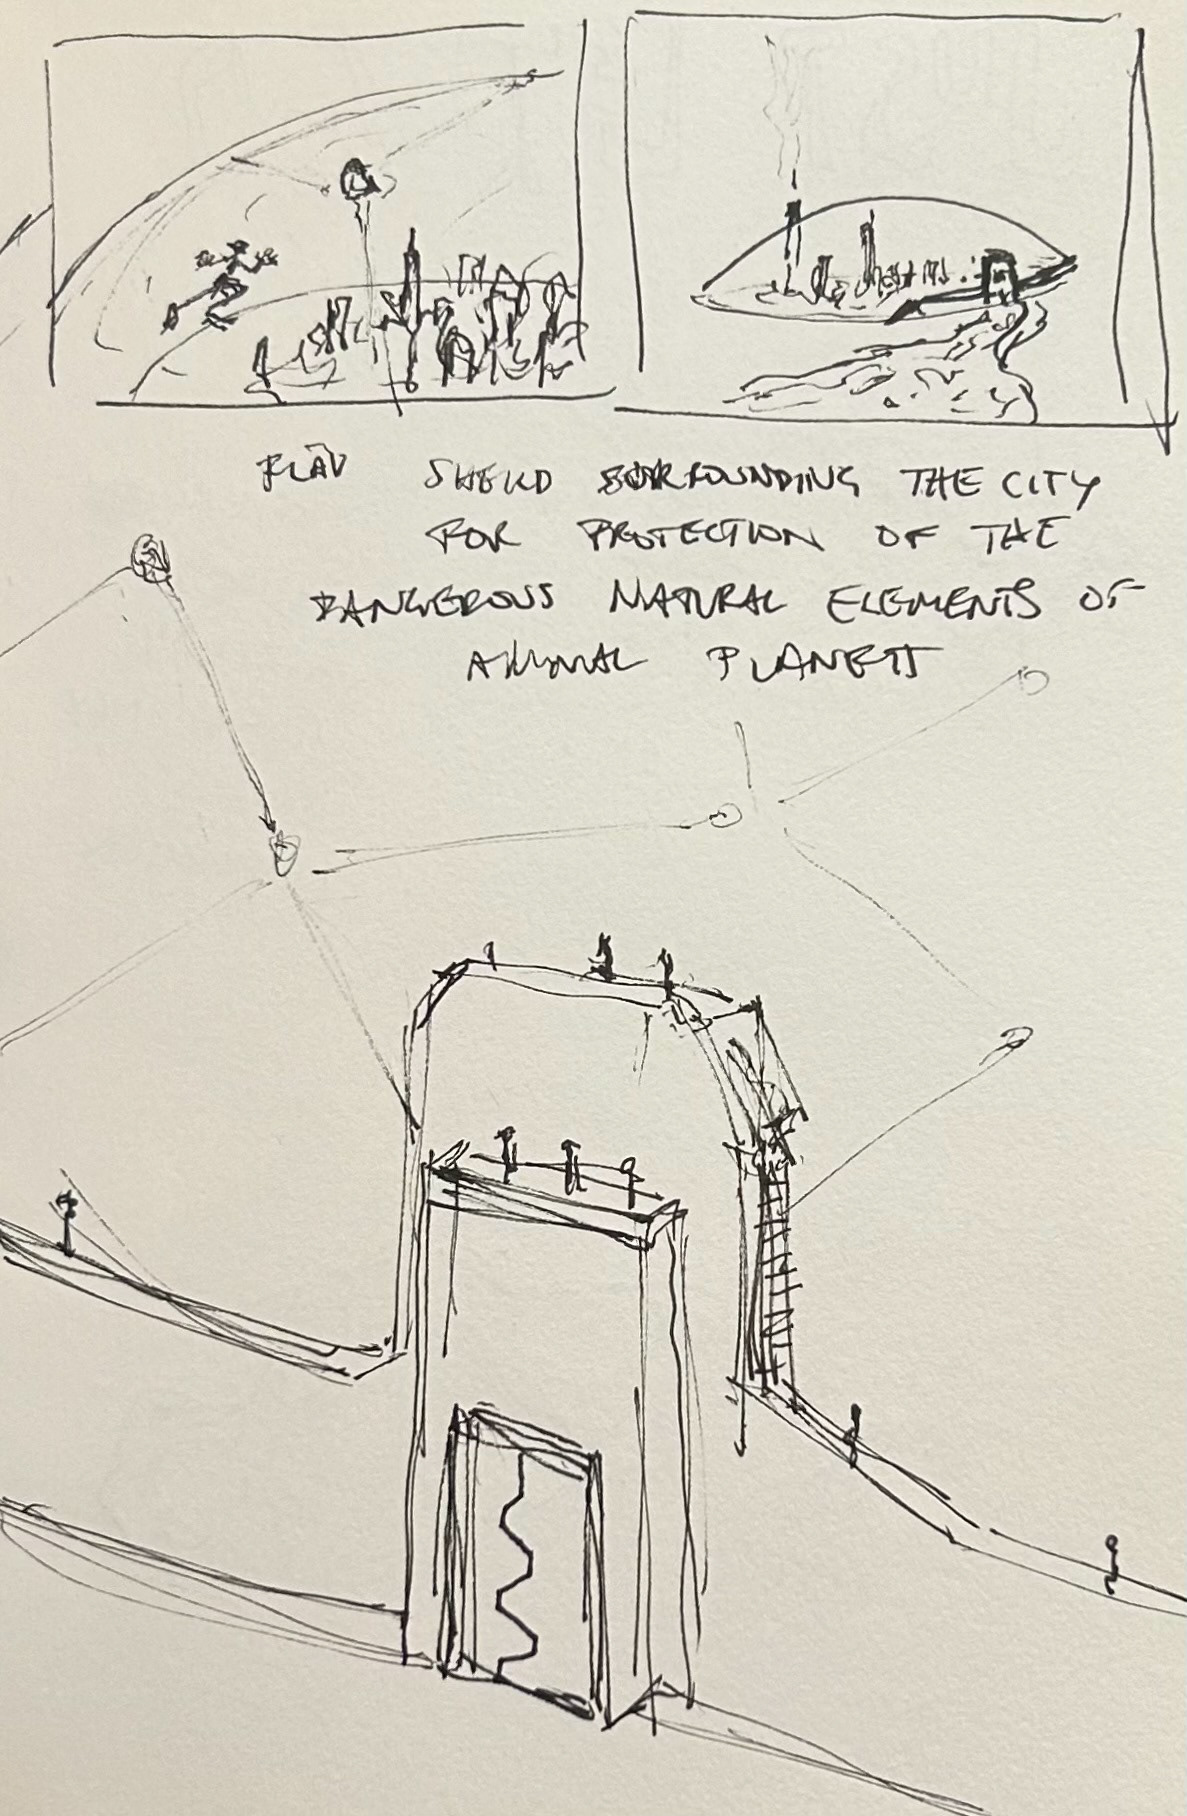 SHEILD SURROUNDING THE CITY
FOR PROTECTION OF THE
DANGEROUS NATURAL ELEMENTS OF
ANIMAL PLANETT